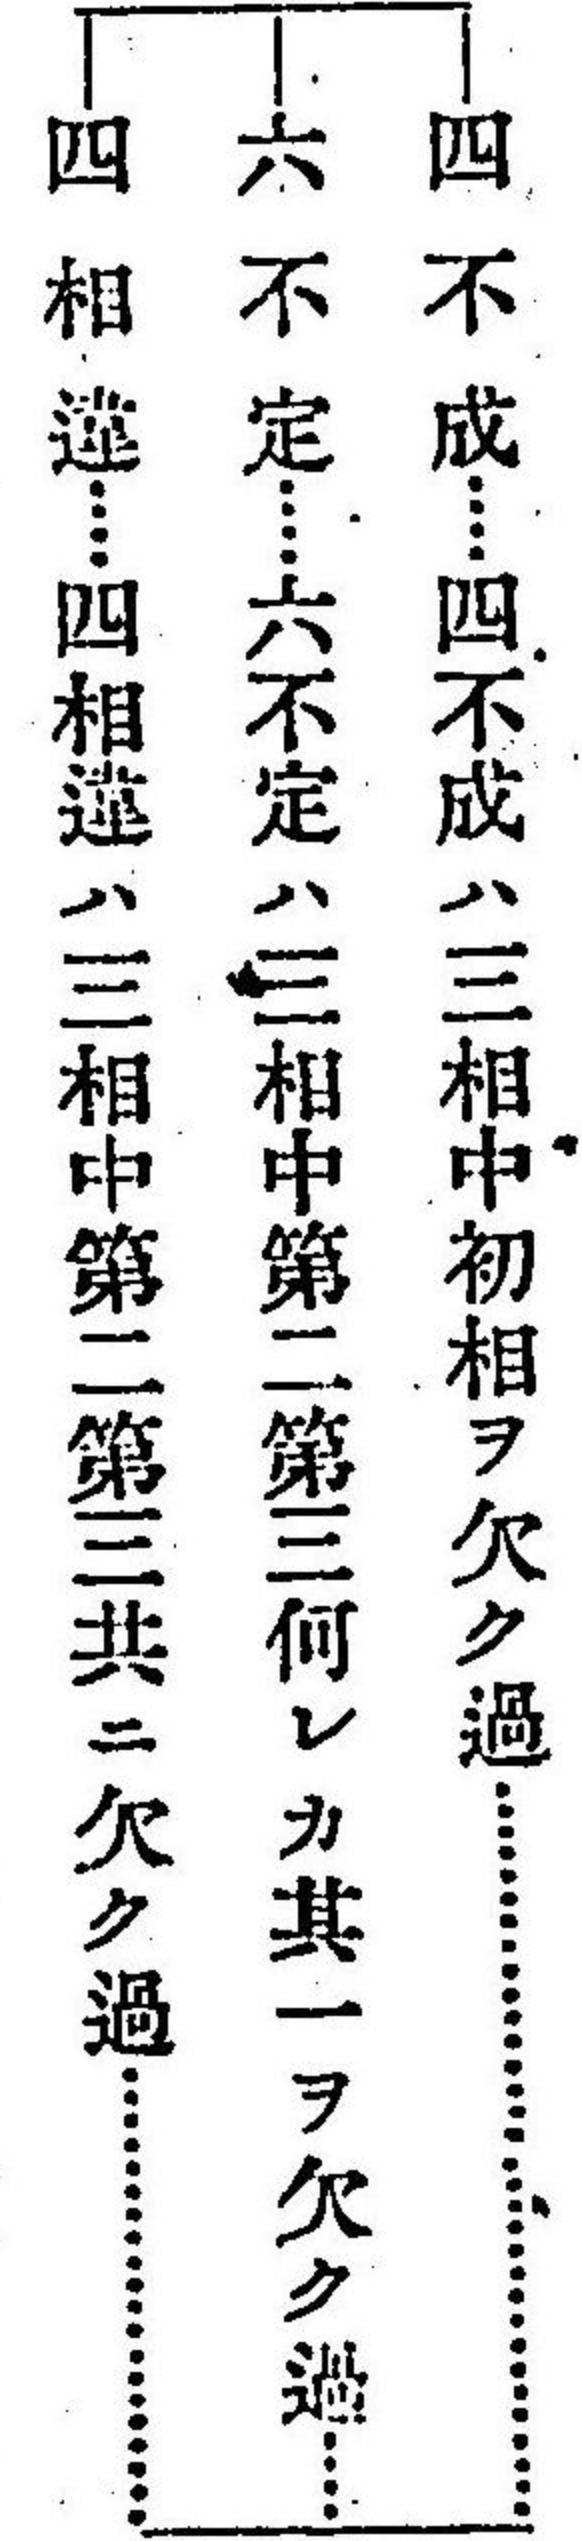 四不成……四不成ハ三相中初相ヲ欠ク過
六不定……六不定ハ三相中第二第三何レカ其一ヲ欠ク過
四相違……四相違ハ三相中第二第三共ニ欠ク過